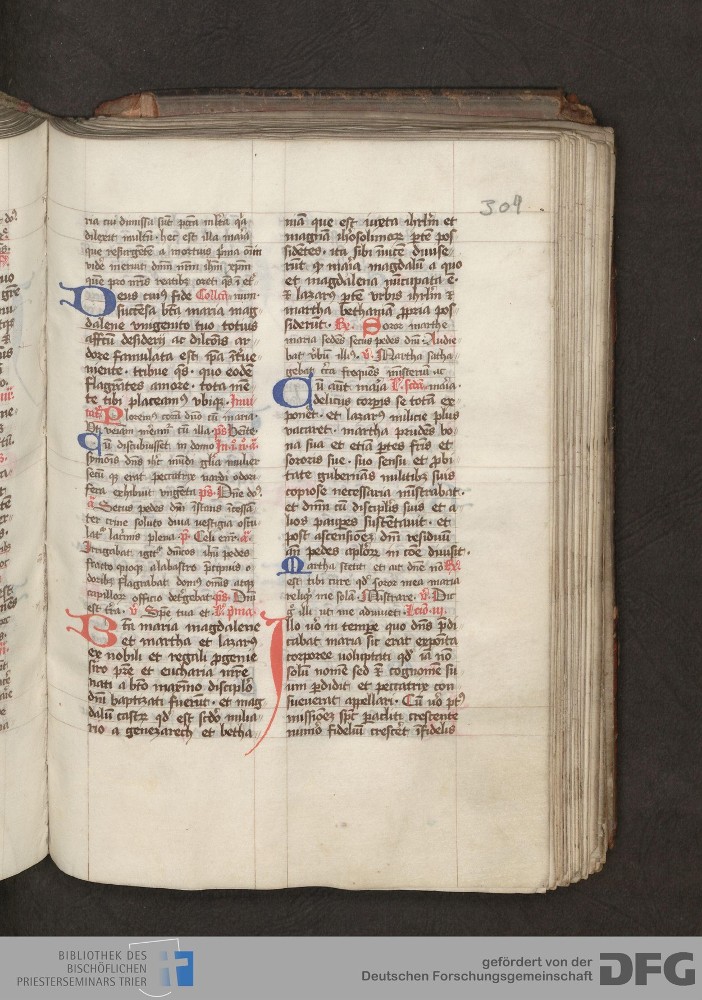 309
ria cui dimissa sūt pctā mlta qā
dilexit multū · hec est illa maria
que resurgēte a mortuis
vide meruit dnm nrm ihm xpm
que pro nris reatibꝫ oret qs
Deus cuiꝰ fide Collcā
suscēsa bta maria mag
dalene vnigenito tuo totius
affctū desiderij ac dilcōis ar
dore famulata est
mente · tribue qs · quo eodē
flagrātes amore · tota mē
te tibi placeamꝰ vbiqꝫ · Inui
Ploremꝰ corā dno cū maria
cū illa · ps Venite
Cū discubuisset in domo
symōis dns mūdi glia mulier
secū erat peccatrix nardi odori
fera exhibuit vngēta ps · Dne
a Secus pedes dni stans
ter crine soluto diua vestigia
latꝰ lacrimis plena · p Celi enr · a
Irrigabat igitꝰ dnicos ihu pedes
fracto quoqꝫ alabastro
doribꝫ flagrabat domꝰ omīs atqꝫ
capillorꝫ officio detgebat · ps · Dni
est tra · v Spe tua et
Bta maria magdalene
et martha et lazarꝰ
ex nobili et regali pgenie
siro pre et eucharia mre
nati a bto maximo disciplo
dni baptizati fuerūt · et mag
dalū castrꝫ qd est scdo milia
rio a genezareth et betha
niam que est iuxta ihrlm et
magnā iherosolimorꝫ ptē pos
sidētes · ita sibi inuicē diuise
rūt ꝙ maria magdalū a quo
et magdalena nūcupata ē ·
et lazarꝰ ptē vrbis ihrlm et
martha bethaniā ppria pos
siderūt · Rꝫ · Soror marthe
maria sedēs secus pedes dni · Audie
bat vbum illiꝰ · v · Martha satha
gebat circa frequēs misteriū
Cū aūt maria Lc. scda · maria ·
delicijs corpis se totā ex
ponet · et lazarꝰ milicie plus
vacaret · martha prudēs bo
na sua et etiā ptes fris et
sororis sue · suo sensu et pbi
tate gubernās militibꝫ suis
copiose necessaria mistrabat ·
et dnm cū disciplis suis et a
lios paupes sustētauit · et
post ascensionez dni residuū
ān pedes aplorꝫ in cōe diuisit ·
Martha stetit et ait dne nō Rꝫ
est tibi cure qd soror mea maria
reliqꝫ me solā Mistrare · v · Dic
gꝰ illi ut me adiuuet · Lcio · iij
Illo vo in tempe quo dns pdi
cabat maria sic erat exposita
corporee voluptati qd iā nō
solū nomē sed et cognomē su
um pdidit et peccatrix con
sueuerat appellari · Cū vo pꝰ
missiōez spc pacliti crescente
nimio fideliū crescēt īfidelis
BIBLIOTHEK DES
BISCHÖFLICHEN
PRIESTERSEMINARS TRIER
gefördert von der
Deutschen Forschungsgemeinschaft
DFG